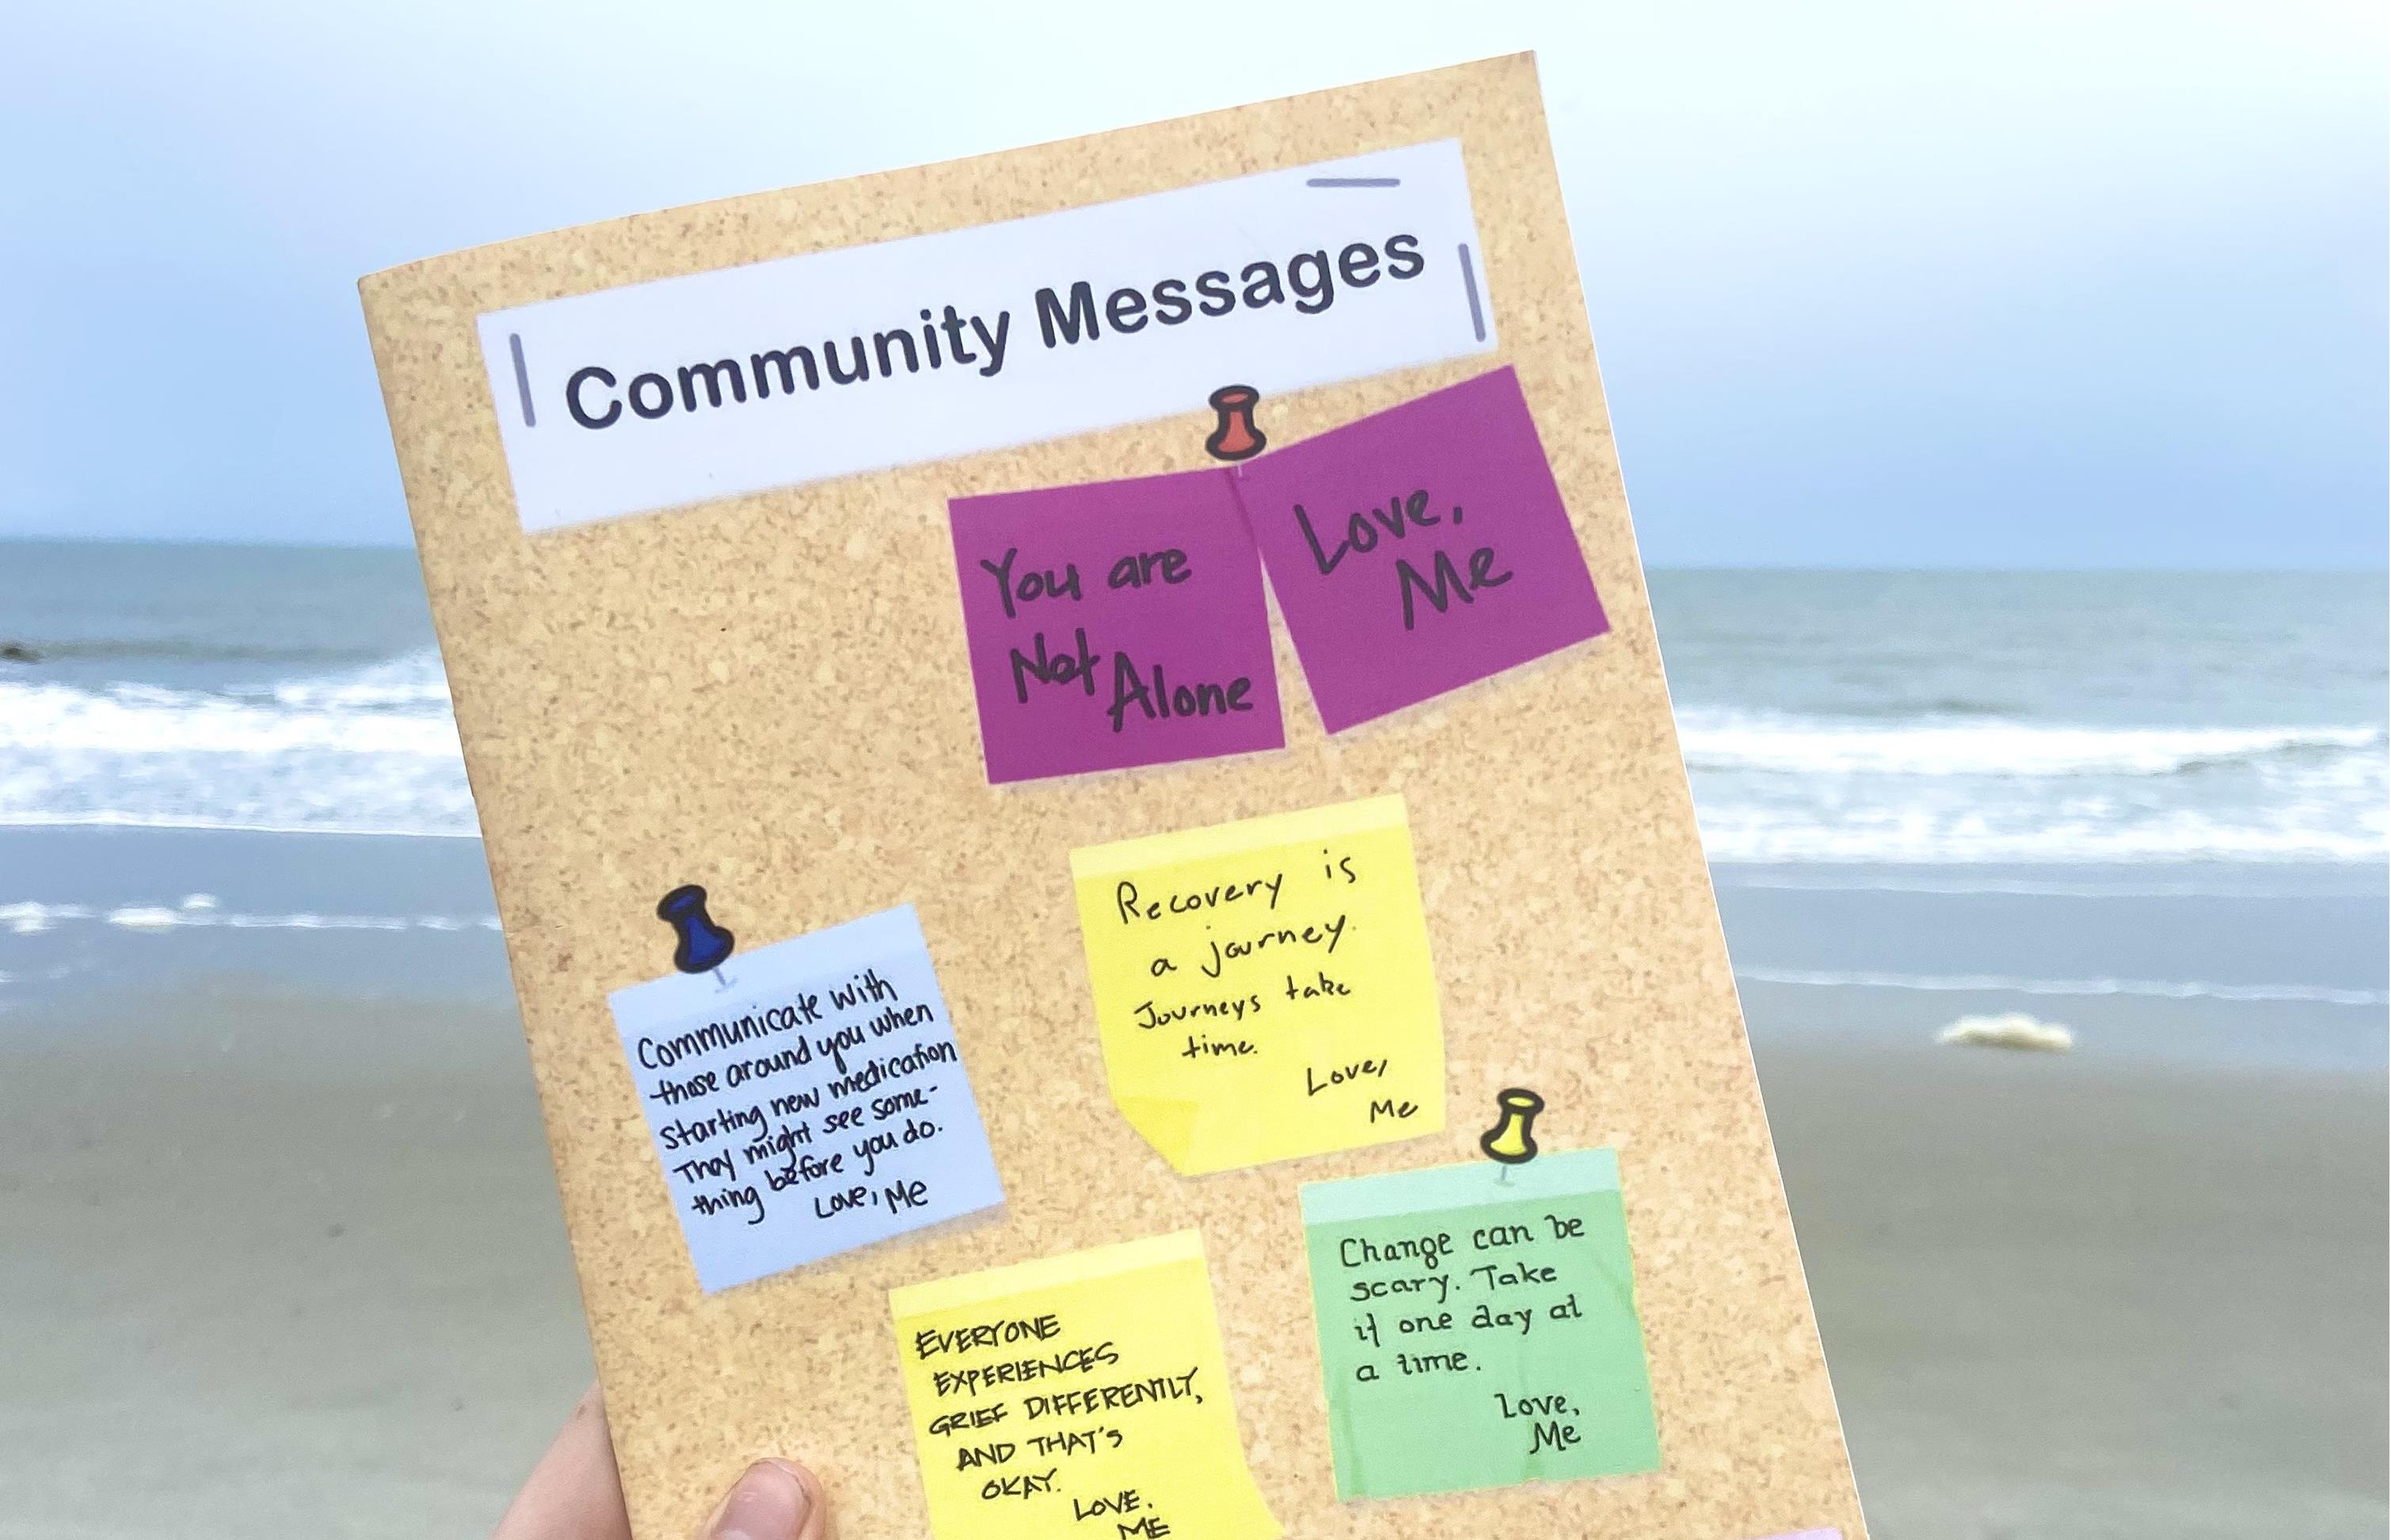 Community Messages
You are
Not Alone
Love,
Me
Recovery is
a journey.
Journeys take
time.
Love,
Me
Communicate with
those around you when
starting new medication
They might see some-
thing before you do.
Love, Me
Change can be
scary. Take
it one day at
a time.
Love,
Me
EVERYONE
EXPERIENCES
GRIEF DIFFERENTLY,
AND THAT'S
OKAY.
LOVE.
ME